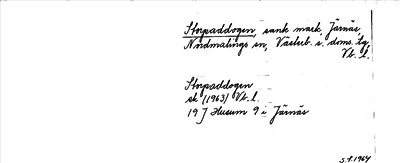 Storpaddogen, sank mark, Järnäs,
Nordmalings sn, Västerb. s. doms. tg,
Vb. l.
Storpaddogen
ek (1963) Vb. l.
19 J Husum 9 i Järnäs
5.9.1964